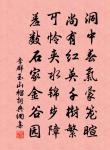 洞中春氣蒙籠暄
尚有紅英千樹繁
可憐夾水錦步障
羞數石家金谷園
李群玉山榴